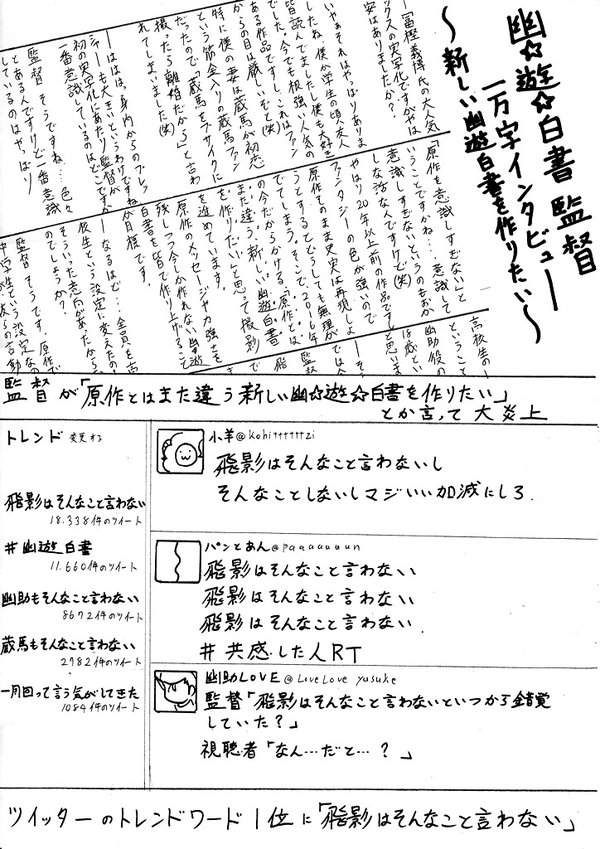 幽☆遊☆白書 監督
一万字インタビュー
〜新しい幽遊白書を作りたい〜
―「冨樫義博氏の大人気
クスの実写化ですがやは
安はありましたか？」
いやぁそれはやっぱりありま
したね。僕が学生の頃友人
皆読んでましたし僕も大好き
でした。今でも根強い人気の
ある作品ですし。これはファン
の目は厳しいぞと(笑)
特に僕の妻は蔵馬が初恋
という筋金入りの蔵馬ファン
だったので「蔵馬をブサイクに
撮ったら離婚だから」と言わ
れてしまいました(笑)
―ははは、身内からのプレッ
シャーも大きいというわけですね
初の実写化にあたり監督が
一番意識しているのはどこですか
監督 そうですね…色々
とあるんですけど一番意識
しているのはやっぱり
「原作を意識しすぎない」と
いうことですかね…意識して
意識しすぎないというのもおか
しな話なんですけど(笑)
やはり20年以上前の作品ですし
ファンタジーの色が強いので
原作をそのまま忠実に再現しよ
うとするとどうしても無理が
でてしまう。そこで、2016年
の今だからかける、原作とは
また違う"新しい幽遊白書"
を作りたいと思って撮影
を進めています。
原作の力やメッセージ力強さを
残しつつ今しか作れない幽遊
白書を皆で作り上げること
が目標です。
―なるほど…全員を高
校生という設定に変えたのも
そういった志向があったから
でしょうか？
監督 そうです。原作で
中学生という設定なの
高校生の
ということ
幽助役の
は歳とい
と思いま
では今
監督が「原作とはまた違う新しい幽☆遊☆白書を作りたい」
とか言って大炎上
トレンド 変更する
飛影はそんなこと言わない
18.338件のツイート
#幽遊白書
11.660件のツイート
幽助もそんなこと言わない
8672件のツイート
蔵馬もそんなこと言わない
2782件のツイート
一周回って言う気がしてきた
1084件のツイート
小羊@kohittttttzi
飛影はそんなこと言わないし
そんなことしないしマジいい加減にしろ.
パンとあん@paaauuuun
飛影はそんなこと言わない
飛影はそんなこと言わない
飛影はそんなこと言わない
#共感した人RT
幽助LOVE @LoveLove yusuke
監督「飛影はそんなこと言わないといつから錯覚
していた？」
視聴者「なん…だと…？」
ツイッターのトレンドワード1位に「飛影はそんなこと言わない」